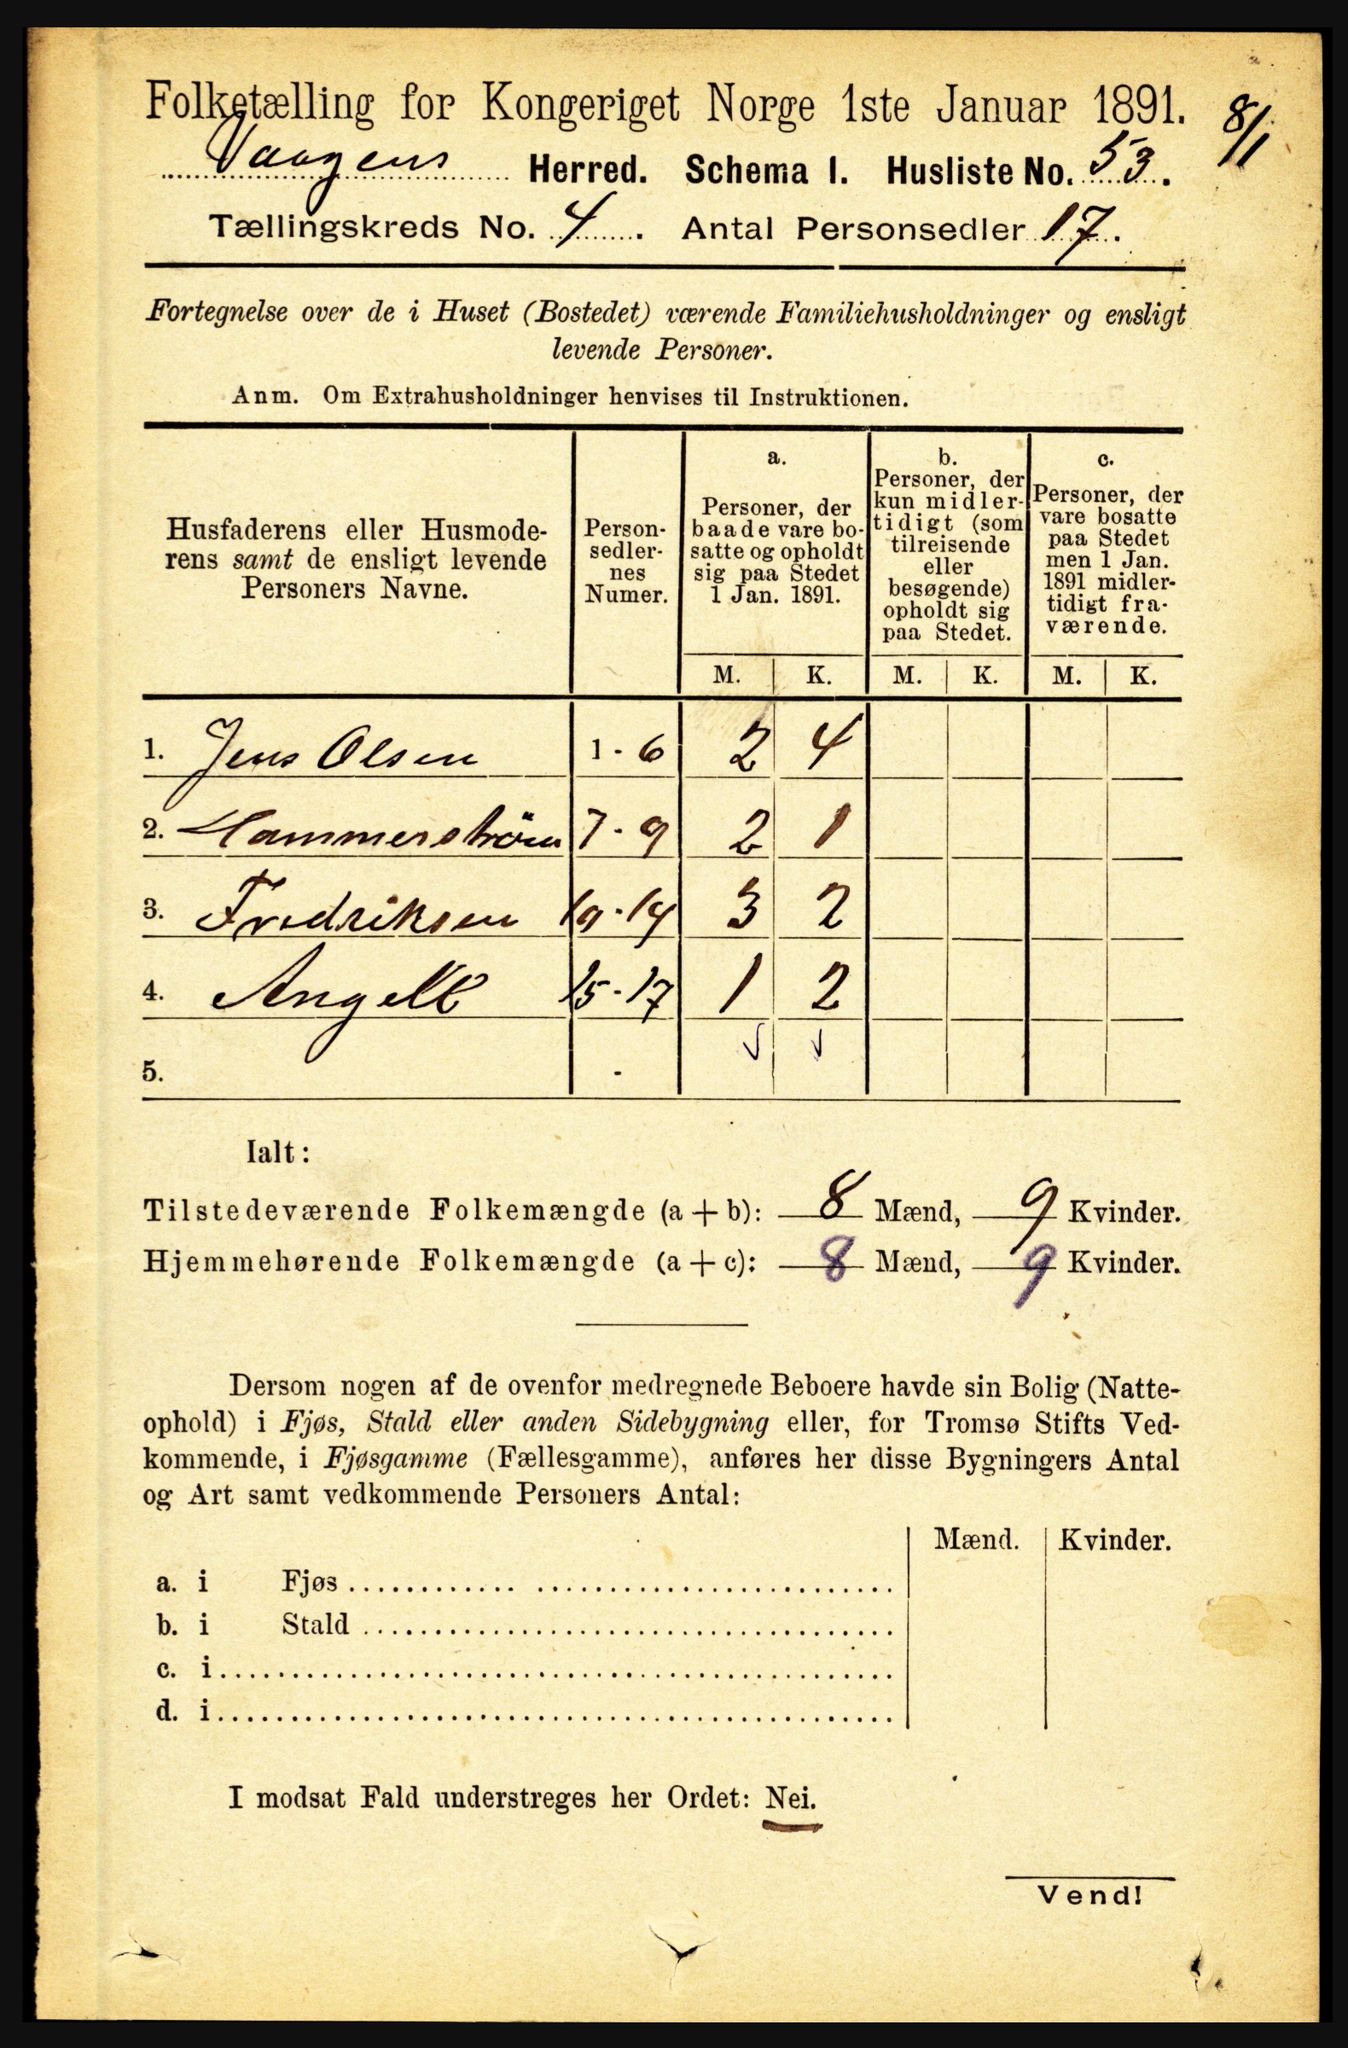 Folketælling for Kongeriget Norge 1ste Januar 1891.
8/1
Vaagens Herred. Schema I. Husliste No. 53.
Tællingskreds No. 4. Antal Personsedler 17.
Fortegnelse over de i Huset (Bostedet) værende Familiehusholdninger og ensligt
levende Personer.
Anm. Om Extrahusholdninger henvises til Instruktionen.
Husfaderens eller Husmode-
rens samt de ensligt levende
Personers Navne.
Person-
sedler-
nes
Numer.
a.
Personer, der
baade vare bo-
satte og opholdt
sig paa Stedet
1 Jan. 1891.
b.
Personer, der
kun midler-
tidigt (som
tilreisende
eller
besøgende)
opholdt sig
paa Stedet.
c.
Personer, der
vare bosatte
paa Stedet
men 1 Jan.
1891 midler-
tidigt fra-
værende.
M. K. M. K. M. K.
1. Jens Olsen 1-6 2 4
2. Hammerström 7-9 2 1
3. Fredriksen 10-14 3 2
4. Angell 15-17 1 2
5. -
Ialt:
Tilstedeværende Folkemængde (a + b): 8 Mænd, 9 Kvinder.
Hjemmehørende Folkemængde (a + c): 8 Mænd, 9 Kvinder.
Dersom nogen af de ovenfor medregnede Beboere havde sin Bolig (Natte-
ophold) i Fjøs, Stald eller anden Sidebygning eller, for Tromsø Stifts Ved-
kommende, i Fjøsgamme (Fællesgamme), anføres her disse Bygningers Antal
og Art samt vedkommende Personers Antal:
Mænd. Kvinder.
a. i Fjøs
b. i Stald
c. i
d. i
I modsat Fald understreges her Ordet: Nei.
Vend!